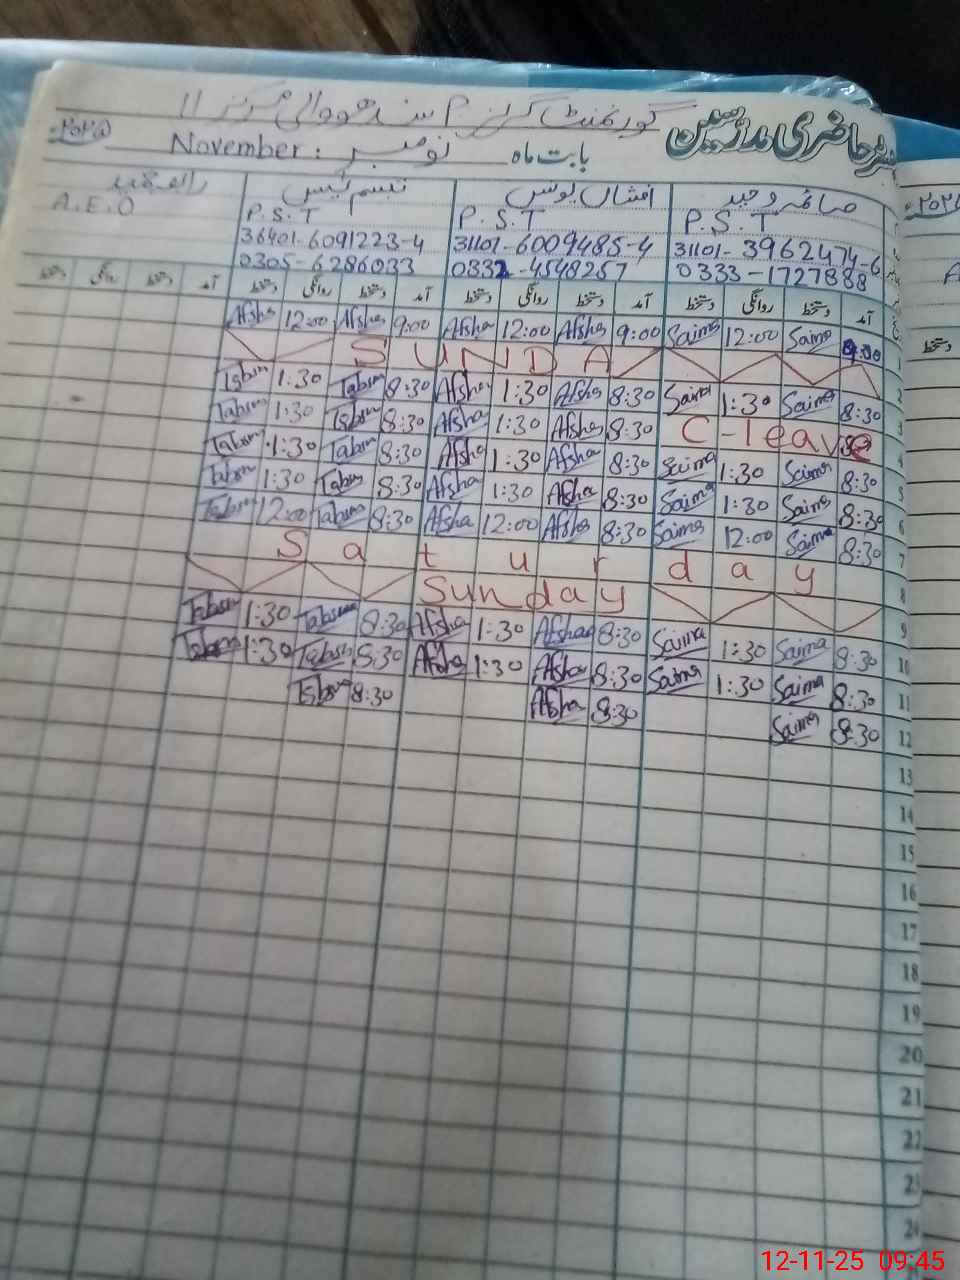 رجسٹر حاضری مدرسین
گورنمنٹ گرلز
مرکز 11
۲۰۲۵ء November: نومبر بابت ماہ
صائمہ وحید افشاں یونس تبسم
P.S.T P.S.T P.S.T A.E.O
31101-3962474-6 31101-6009485-4 36401-6091223-4
0333-1727888 0332-4548257 0305-6286033
آمد دستخط روانگی دستخط آمد دستخط روانگی دستخط آمد دستخط روانگی دستخط آمد دستخط روانگی دستخط
1 9:00 Saima 12:00 Saima 9:00 Afsha 12:00 Afsha 9:00 Afsha 12:00 Afsha
2 SUNDA
3 8:30 Saima 1:30 Saima 8:30 Afsha 1:30 Afsha 8:30 Tabsm 1:30 Tabsm
4 C-leave 8:30 Afsha 1:30 Afsha 8:30 Tabsm 1:30 Tabsm
5 8:30 Saima 1:30 Saima 8:30 Afsha 1:30 Afsha 8:30 Tabsm 1:30 Tabsm
6 8:30 Saima 1:30 Saima 8:30 Afsha 1:30 Afsha 8:30 Tabsm 1:30 Tabsm
7 8:30 Saima 12:00 Saima 8:30 Afsha 12:00 Afsha 8:30 Tabsm 12:00 Tabsm
8 Saturday
9 Sunday
10 8:30 Saima 1:30 Saima 8:30 Afsha 1:30 Afsha 8:30 Tabsm 1:30 Tabsm
11 8:30 Saima 1:30 Saima 8:30 Afsha 1:30 Afsha 8:30 Tabsm 1:30 Tabsm
12 8:30 Saima 8:30 Afsha 8:30 Tabsm
13
14
15
16
17
18
19
20
21
22
23
24
12-11-25 09:45